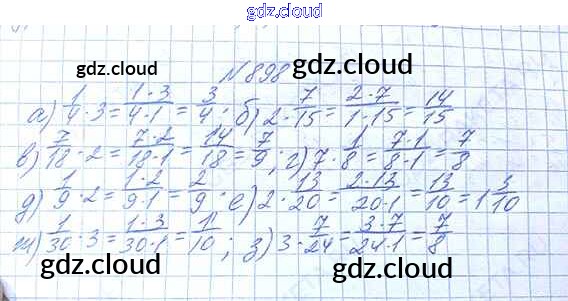 gdz.cloud
gdz.cloud gdz.cloud
№898
а) 1/4 · 3 = 1·3/4·1 = 3/4; б) 2 · 7/15 = 2·7/1·15 = 14/15
в) 7/18 · 2 = 7·2/18·1 = 14/18 = 7/9; г) 7 · 1/8 = 7·1/8·1 = 7/8
д) 1/9 · 2 = 1·2/9·1 = 2/9; е) 2 · 13/20 = 2·13/20·1 = 13/10 = 1 3/10
ж) 1/30 · 3 = 1·3/30·1 = 1/10; з) 3 · 7/24 = 3·7/24·1 = 7/8
gdz.cloud gdz.cloud